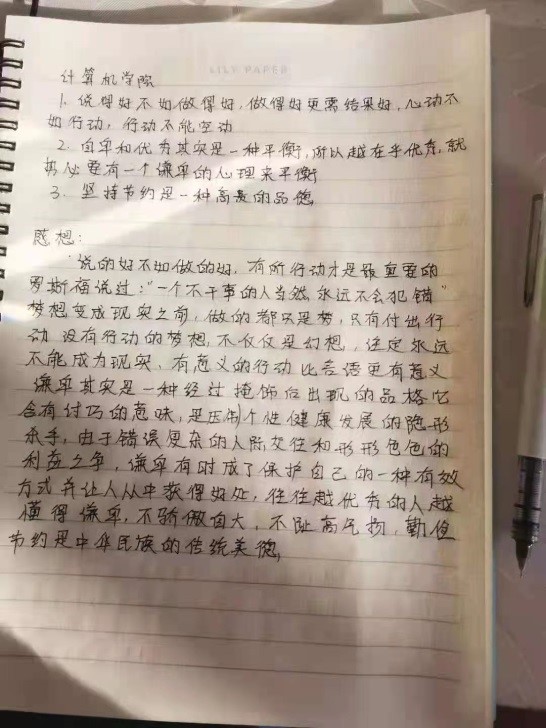 LILY PAPER
计算机学院
1. 说得好不如做得好，做得好更需结果好，心动不
如行动，行动不能空动
2. 自卑和优秀其实是一种平衡，所以越在乎优秀，就
势必要有一个谦卑的心理来平衡
3. 坚持节约是一种高贵的品德
感想：
说的好不如做的好，有所行动才是最重要的
罗斯福说过："一个不干事的人当然永远不会犯错"
梦想变成现实之前，做的都只是梦，只有付出行
动 没有行动的梦想，不仅仅是幻想，注定永远
不能成为现实、有意义的行动比言语更有意义
谦卑其实是一种经过掩饰后出现的品格它
含有付巧的意味，是压制个性健康发展的隐形
杀手，由于错误复杂的人际交往和形形色色的
利益之争，谦卑有时成了保护自己的一种有效
方式并让人从中获得好处，往往越优秀的人越
懂得谦卑，不骄傲自大，不趾高气扬，勤俭
节约是中华民族的传统美德，